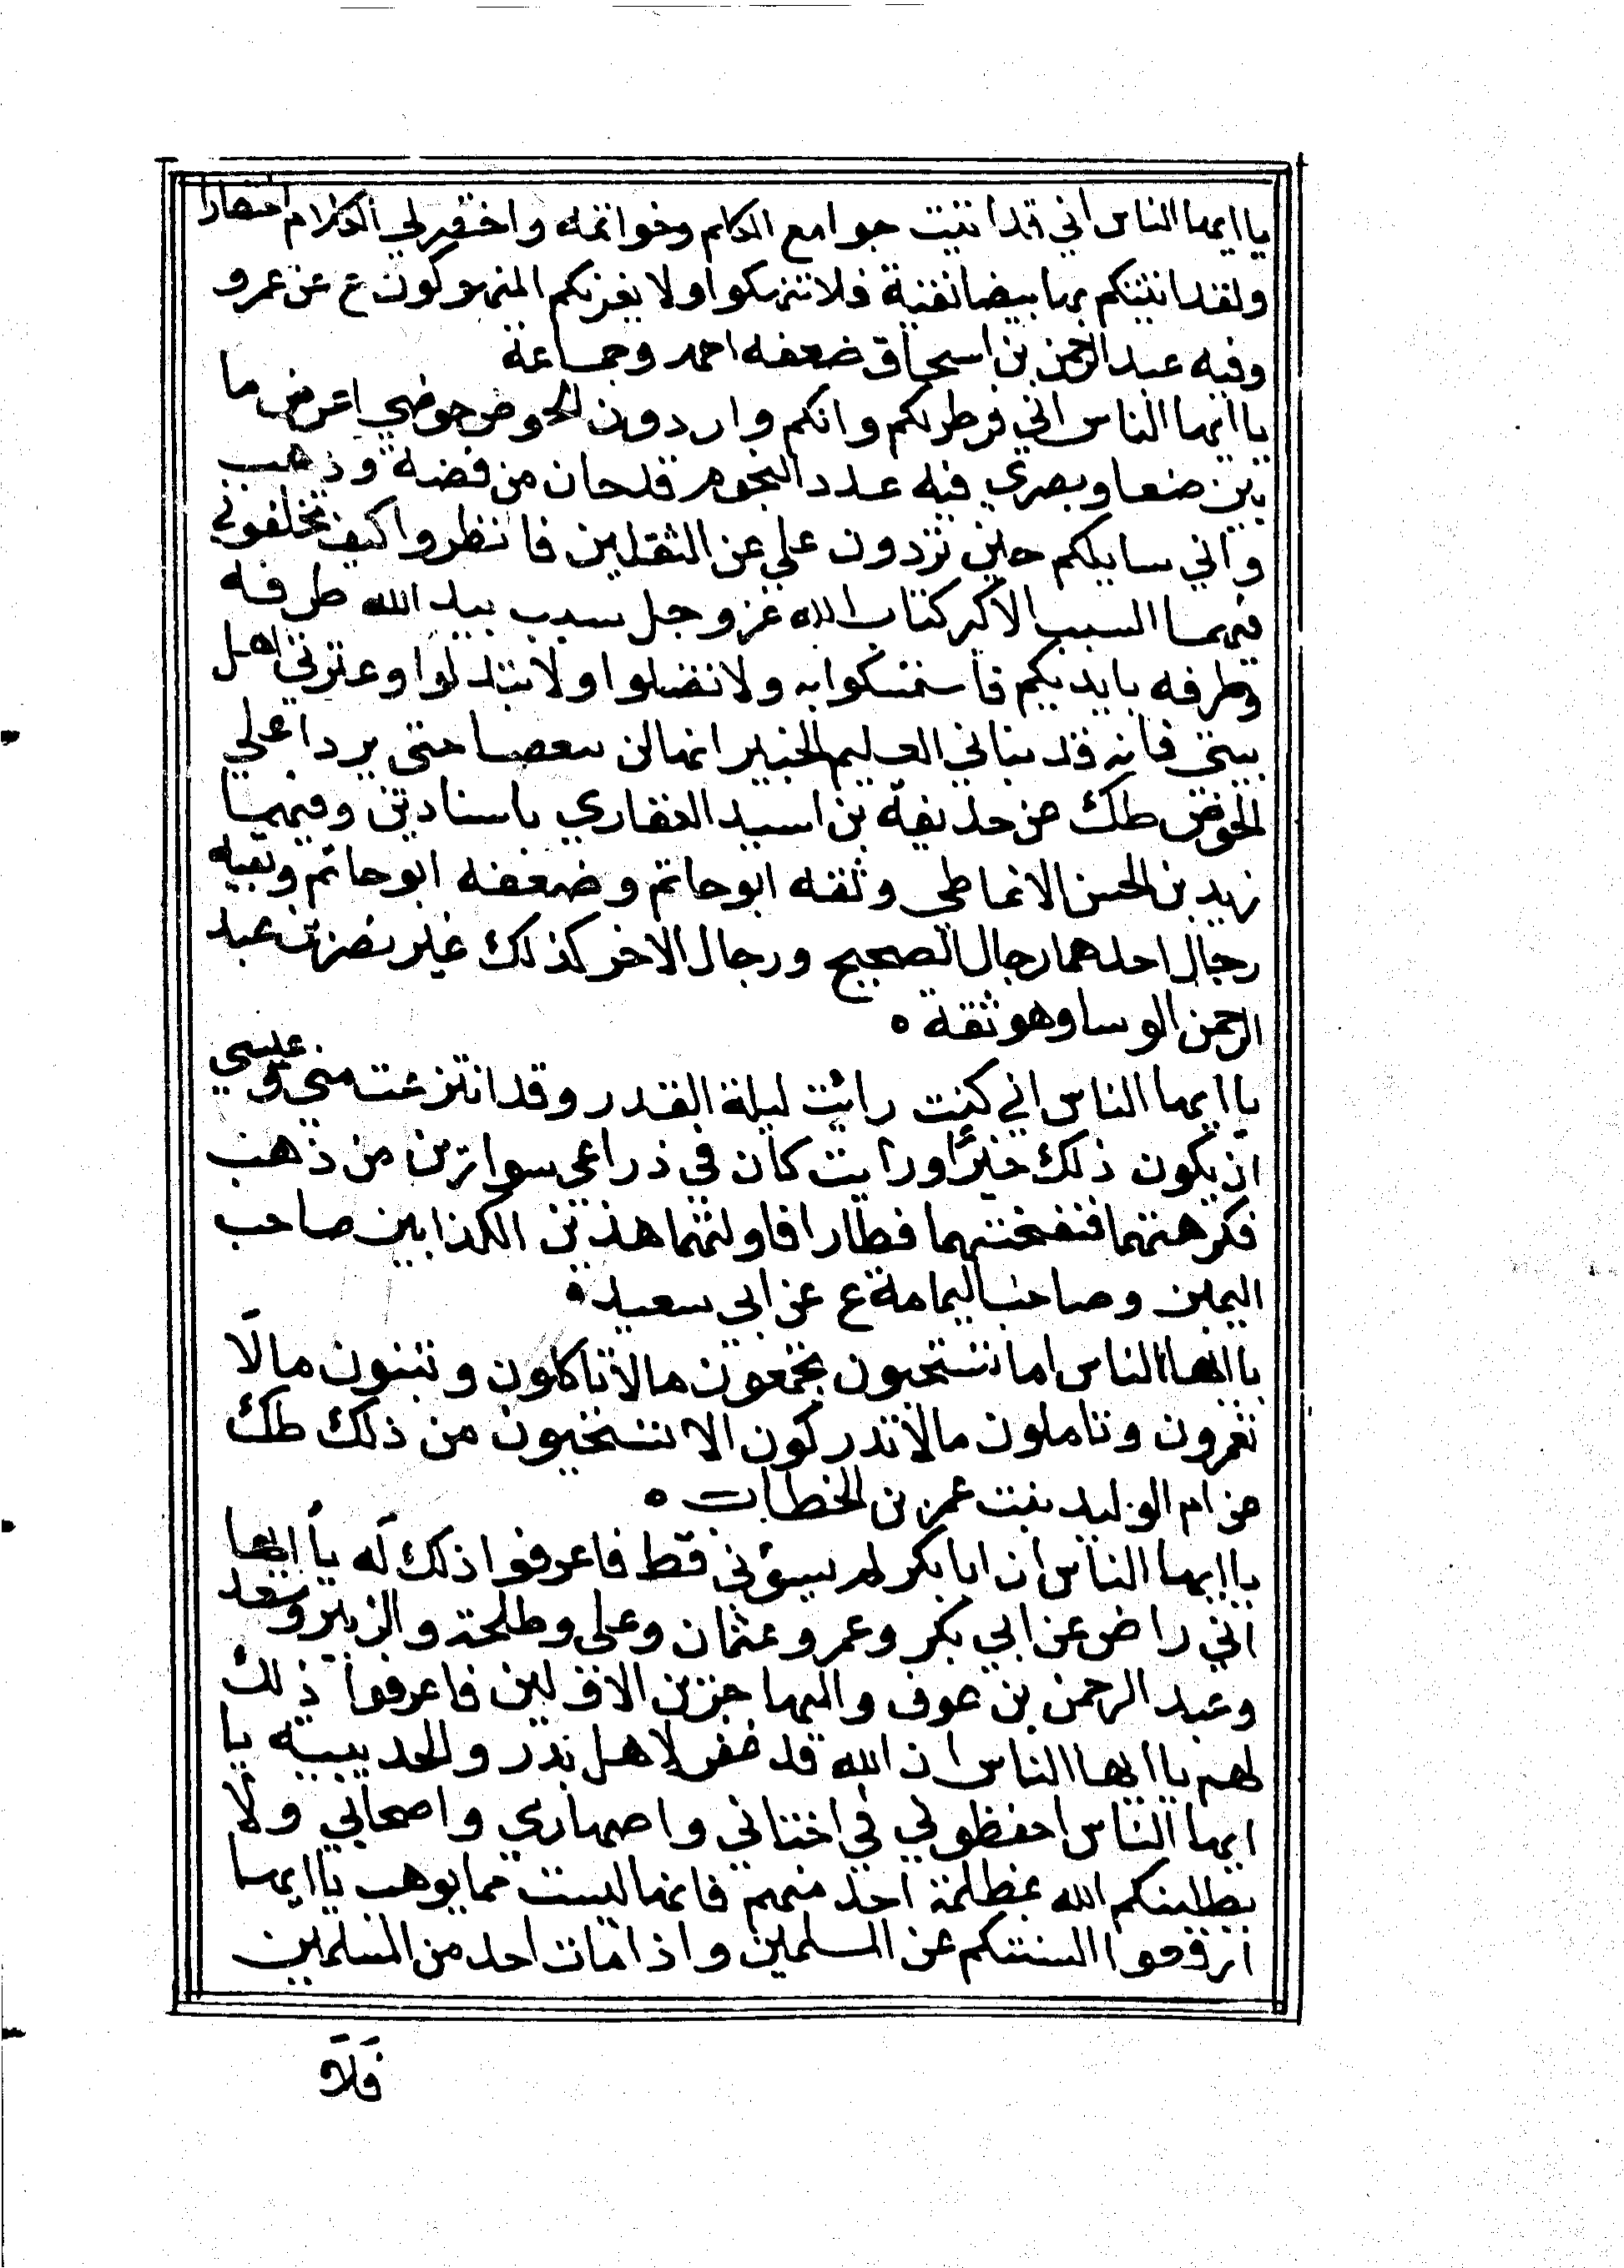 يا ايها الناس اني قد اتيت جوامع الكلم وخواتمه واختصر لي الكلام اختصارا
ولقد اتيتكم بها بيضا نقية فلا تتهوكوا ولا يغرنكم المتهوكون ع عن عمرو
وفيه عبد الرحمن بن اسحاق ضعفه احمد وجماعة
يا ايها الناس اني فرطكم وانكم واردون الحوض حوضي اعرض ما
بين صنعا وبصري فيه عدد النجوم قدحان من فضة وذهب
واني سايلكم حين تردون علي عن الثقلين فانظروا كيف تخلفوني
فيهما السبب الاكبر كتاب الله عز وجل سبب بيد الله طرفه
وطرفه بايديكم فاستمسكوا به ولا تضلوا ولا تبدلوا وعترتي اهل
بيتي فانه قد نباني العليم الخبير انهما لن ينقضيا حتى يردا علي
الحوض طك ض حذيفة بن اسيد الغفاري باسنادين وفيهما
زيد بن الحسن الانماطي وثقه ابو حاتم وضعفه ابو حاتم وبقيه
رجال احدهما رجال الصحيح ورجال الاخر كذلك غير نصر بن عبد
الرحمن الوسا وهو ثقة ه
يا ايها الناس اني كنت رايت ليلة القدر وقد انتزعت مني وعيسي
ان يكون ذلك خيرا ورايت كان في ذراعي سوارين من ذهب
فكرهتهما فنفختهما فطارا فاولتهما هذين الكذابين صاحب
اليمين وصاحب اليمامة ع عن ابي سعيد ه
يا ايها الناس اما تستحيون تجمعون مالا تاكلون وتبنون مالا
تعمرون وتاملون مالا تدركون الا تستحيون من ذلك طك
ض ام الوليد بنت عمر بن الخطاب ه
يا ايها الناس ان ابا بكر لم يسؤني قط فاعرفوا ذلك له يا ايها
اني راض عن ابي بكر وعمر وعثمان وعلي وطلحة والزبير وسعد
وعبد الرحمن بن عوف والمهاجرين الاولين فاعرفوا ذلك
لهم يا ايها الناس ان الله قد غفر لاهل بدر والحديبيه يا
ايها الناس احفظوني في اختاني واصهاري واصحابي ولا
يطلبنكم الله بمظلمة احد منهم فانها ليست مما يوهب يا ايها
ارفعوا السنتكم عن المسلمين واذا مات احد من المسلمين
فلا